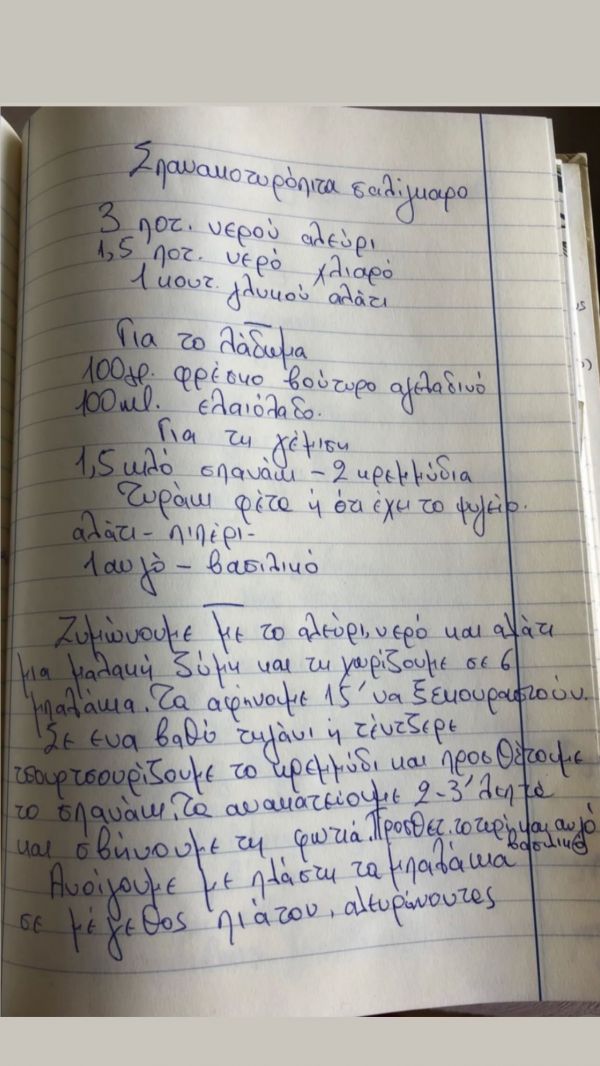 Σπανακοτυρόπιτα σαλίγκαρο
3 ποτ. νερού αλεύρι
1,5 ποτ. νερό χλιαρό
1 κουτ. γλυκού αλάτι
Για το λάδωμα
100γρ. φρέσκο βούτυρο αγελαδινό
100ml. ελαιόλαδο.
Για τη γέμιση
1,5 κιλό σπανάκι - 2 κρεμμύδια
Τυράκι φέτα ή ότι έχει το ψυγείο.
αλάτι - πιπέρι -
1 αυγό - βασιλικό
Ζυμώνουμε με το αλεύρι, νερό και αλάτι
μια μαλακή ζύμη και τη χωρίζουμε σε 6
μπαλάκια. Τα αφήνουμε 15' να ξεκουραστούν.
Σε ένα βαθύ τηγάνι ή τέντζερε
τσουρτσουρίζουμε το κρεμμύδι και προσθέτουμε
το σπανάκι. Το ανακατεύουμε 2-3' λεπτά
και σβήνουμε τη φωτιά. Προσθετ. το τυρί και αυγό
βασιλικό
Ανοίγουμε με πλάστη τα μπαλάκια
σε μέγεθος πιάτου, αλευρώνοντας